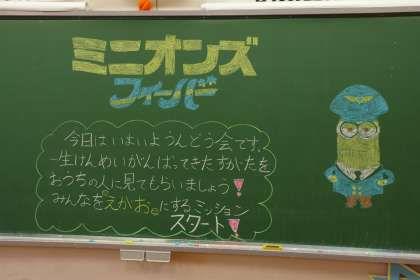 ミニオンズ
フィーバー
今日はいよいようんどう会です。
一生けんめいがんばってきたすがたを
おうちの人に見てもらいましょう!
みんなをえがおにするミッション
スタート!